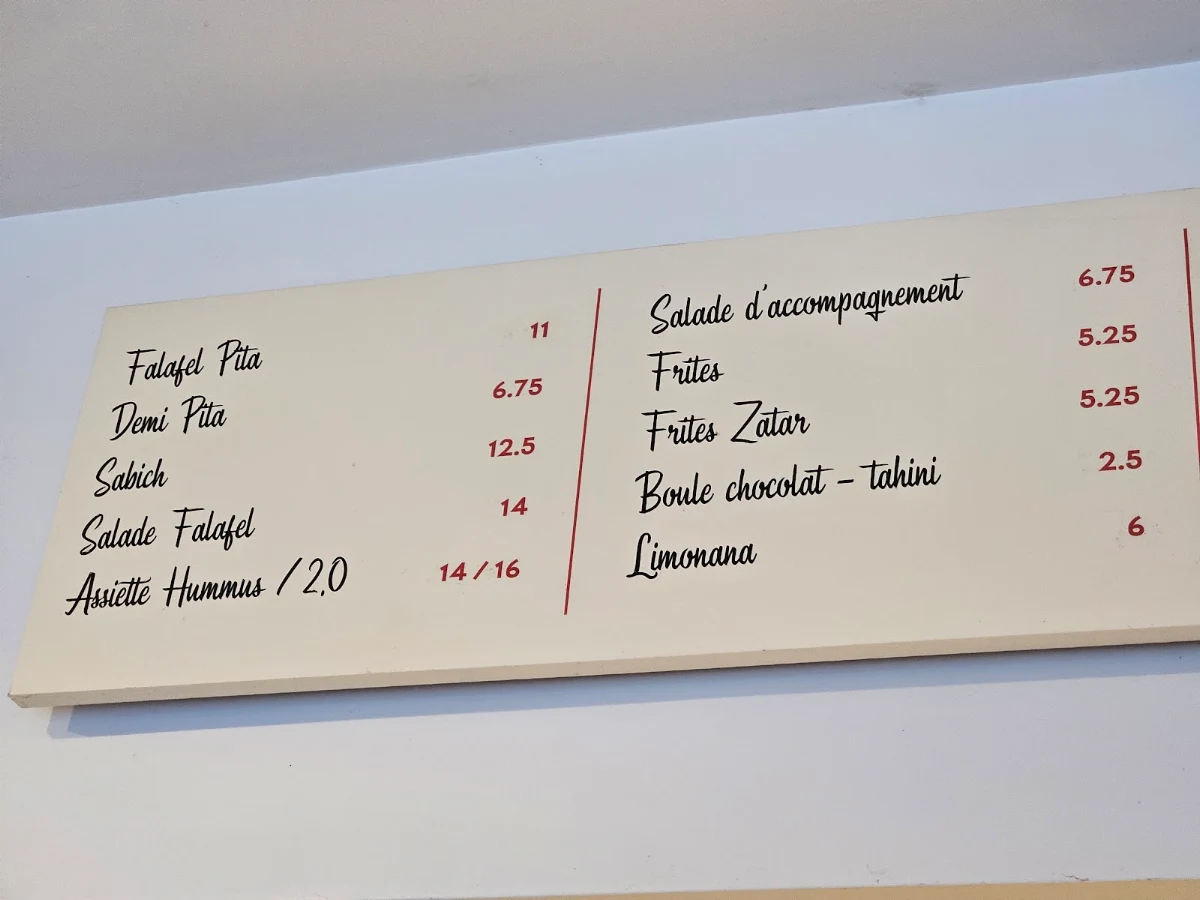 Falafel Pita 11
Demi Pita 6.75
Sabich 12.5
Salade Falafel 14
Assiette Hummus / 2.0 14 / 16
Salade d'accompagnement 6.75
Frites 5.25
Frites Zatar 5.25
Boule chocolat - tahini 2.5
Limonana 6